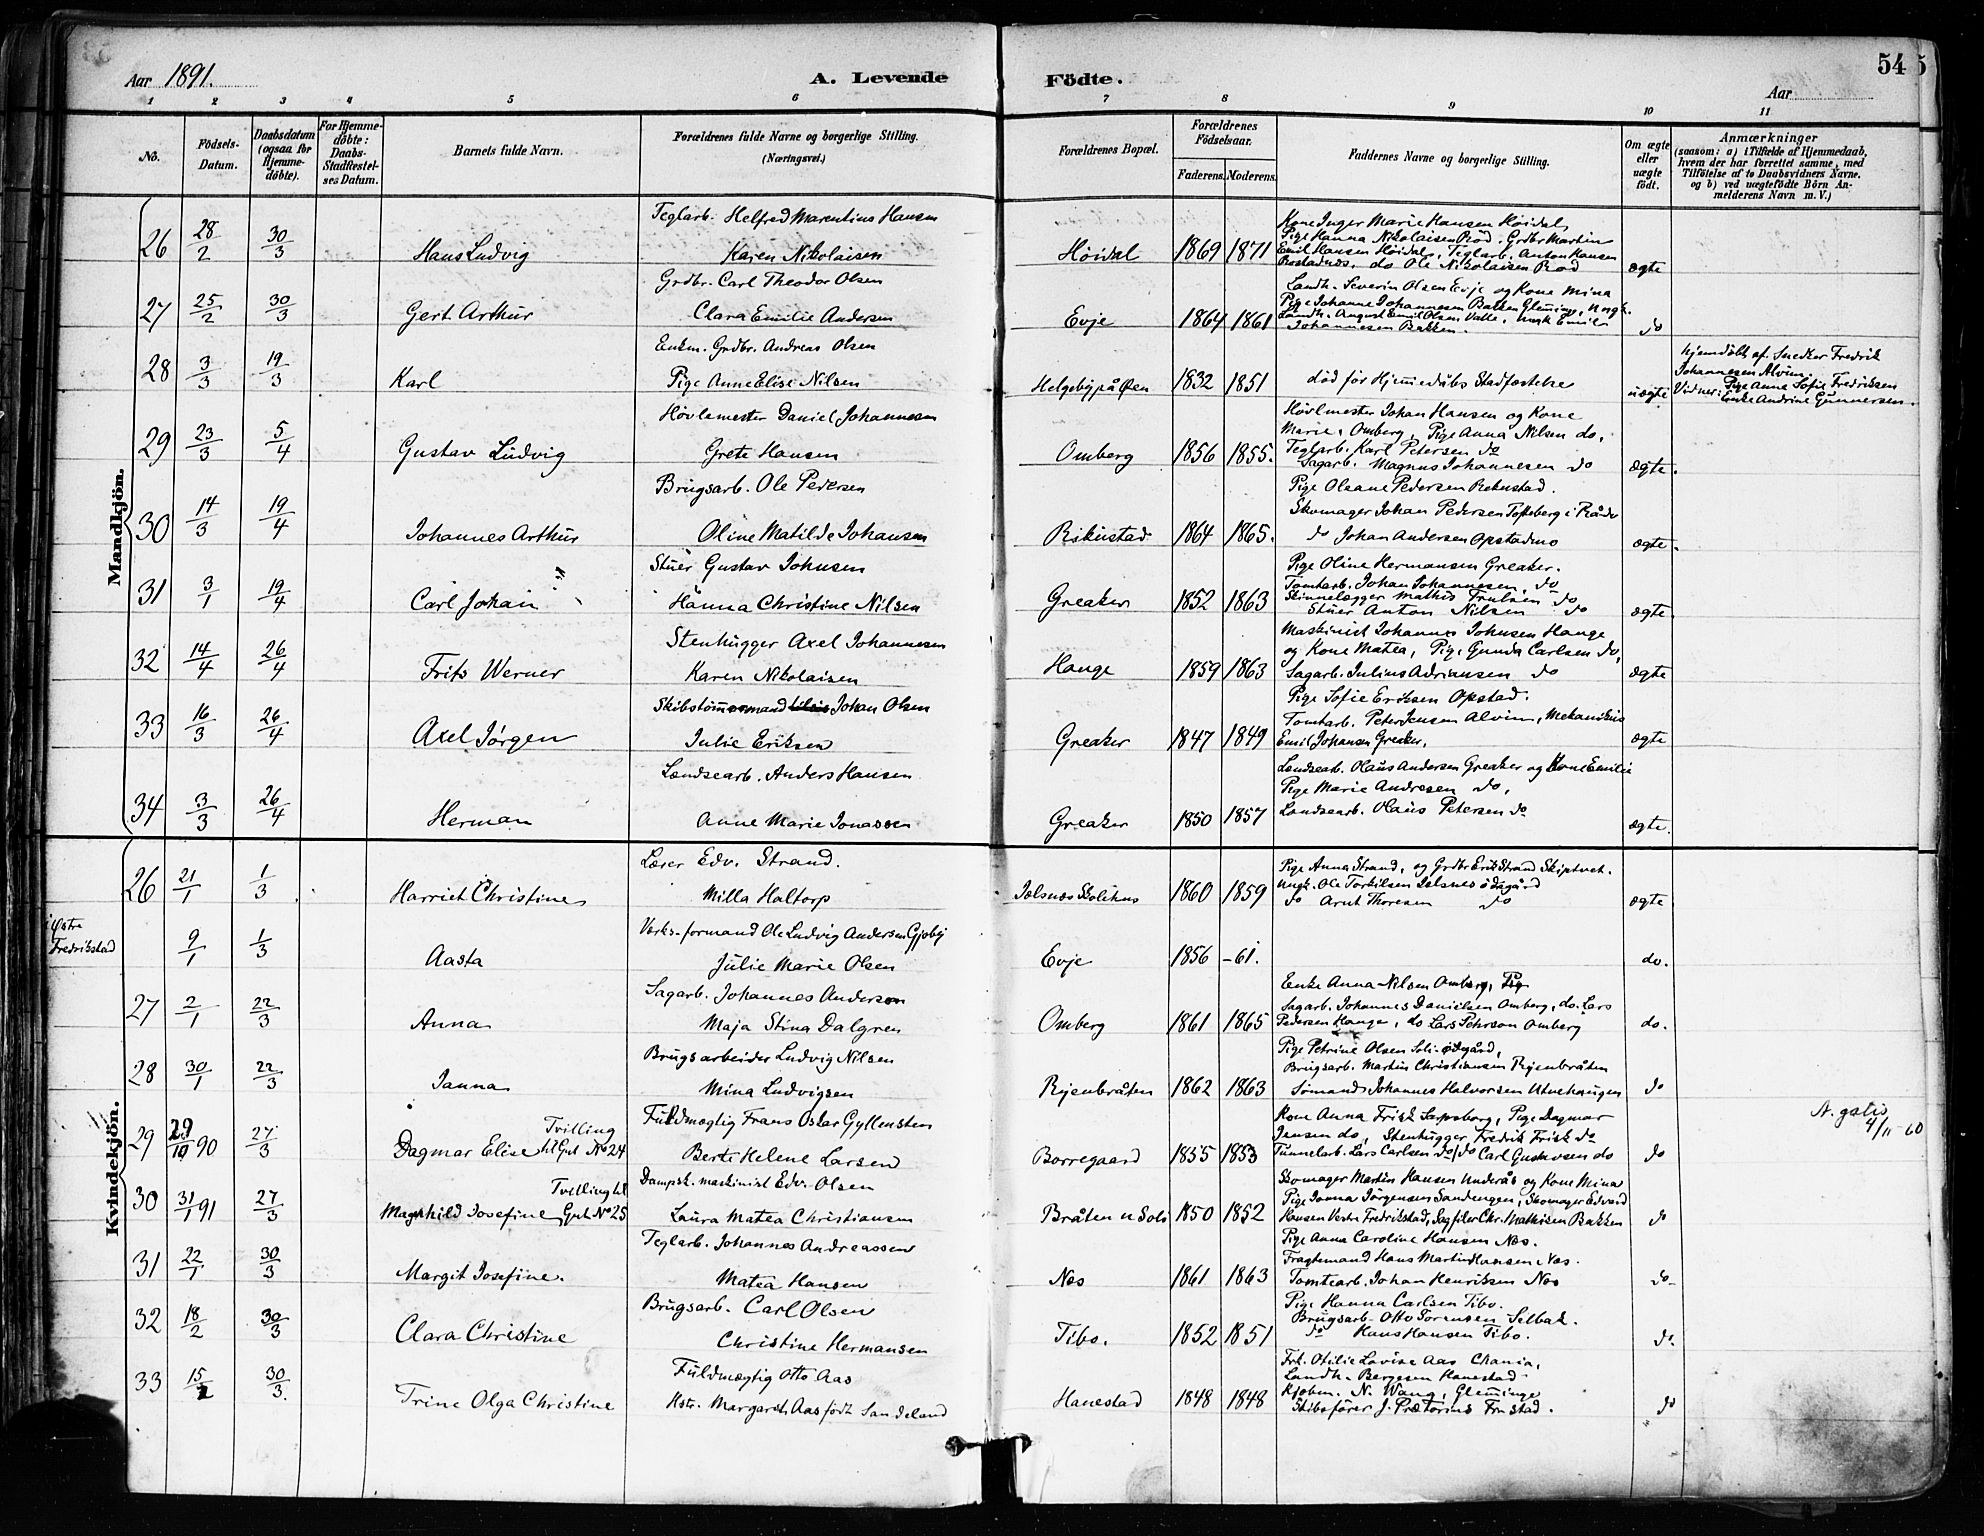 54
Aar 1891.
A. Levende Födte.
Aar
1 2 3 4 5 6 7 8 9 10 11
No.
Födsels-Datum.
Daabsdatum (ogsaa for Hjemme-döbte).
For Hjemme-döbte: Daabs-Stadfestel-ses Datum.
Barnets fulde Navn.
Forældrenes fulde Navne og borgerlige Stilling. (Næringsvei.)
Forældrenes Bopæl.
Forældrenes Födselsaar.
Faderens. Moderens.
Faddernes Navne og borgerlige Stilling.
Om ægte eller uægte födt.
Anmærkninger
(saasom: a) i Tilfælde af Hjemmedaab,
hvem der har forrettet samme, med
Tilföielse af to Daabsvidners Navne.
og b) ved uægtefödte Börn An-
melderens Navn m.V.)
Mandkjön.
26 28/2 30/3 Hans Ludvig
Teglarb. Helfred Marentius Hansen
Karen Nikolaisen
Høidal 1869 1871
Kone Inger Marie Hansen Høidal,
Pige Hanna Nikolaisen Rød. Grdbr Martin
Emil Hansen Høidal, Teglarb. Anton Hansen
do Ole Nikolaisen Rød
ægte
27 25/2 30/3 Gert Arthur
Grdbr. Carl Theodor Olsen
Clara Emilie Andersen
Evje 1864 1861
Landh. Severin Olsen Evje og Kone Mina
Pige Johanne Johannesen Bakken Glemminge, Ungk.
Landh. August Emil Olsen Valle, Ungk Emil
Johannesen Bakken.
do
28 3/3 19/3 Karl
Enkm. Grdbr. Andreas Olsen
Pige Anne Elise Nilsen
Helgebypåøen 1832 1851
død før Hjemmedåbs Stadfæstelse
uægte
Hjemdöbt af Snedker Fredrik
Johannesen Alvim.
Vidner: Pige Anne Sofie Fredriksen
Enke Andrine Gunnersen.
29 23/3 5/4 Gustav Ludvig
Høvlemester Daniel Johannesen
Grete Hansen
Omberg 1856 1855.
Høvlmester Johan Hansen og Kone
Marie, Omberg, Pige Anna Nilsen do,
Teglarb. Karl Petersen do
Sagarb. Magnus Johannesen do
ægte.
30 14/3 19/4 Johannes Arthur
Brugsarb. Ole Pedersen
Oline Matilde Johansen
Rikustad 1864 1865.
Pige Oleane Pedersen Rekustad.
Skomager Johan Pedersen Tofteberg i Råde
do Johan Andersen Opstadmo
ægte.
31 3/1 19/4 Carl Johan
Stuer Gustav Johnsen
Hanna Christine Nilsen
Greaker 1852 1863
Pige Oline Hermansen Greaker.
Tomtarb. Johan Johannesen, do
Skinnelægger Mathis Trulsen do
Stuer Anton Nilsen do
ægte.
32 14/4 26/4 Frits Werner
Stenhugger Axel Johannesen
Karen Nikolaisen
Hauge 1859 1863
Maskinist Johannes Johnsen Hauge
og Kone Matea, Pige Gunda Carlsen do,
Sagarb. Julius Adriansen do
ægte
33 16/3 26/4 Axel Jørgen
Skibstømmermand Johan Olsen
Julie Eriksen
Greaker 1847 1849
Pige Sofie Eriksen Opstad.
Tomtarb. Peter Jensen Alvim, Mekanikus
Emil Johansen Greaker.
ægte
34 3/3 26/4 Herman
Landsearb. Anders Hansen
Anne Marie Jonassen
Greaker 1850 1857
Landsearb. Olaus Andersen Greaker og Kone Emilie
Pige Marie Andresen do,
Landsearb. Olaus Petersen do
ægte.
Kvindekjön.
26 21/1 1/3 Harriet Christine
Lærer Edv. Strand.
Milla Haltorp
Jelsnæs Skolehus 1860 1859
Pige Anna Strand, og Grdbr Erik Strand Skiptvet.
Ungk. Ole Torkilsen Jelsnes ødegård
do Arnt Thoresen do
ægte
i Østre Fredrikstad
9/1 1/3 Aasta
Værks-formand Ole Ludvig Andersen Gjøby
Julie Marie Olsen
Evje 1856 -61.
do.
27 2/1 22/3 Anna
Sagarb. Johannes Anderson
Maja Stina Dalgren
Omberg 1861 1865
Enke Anna Nilsen Omberg, Pig
Sagarb. Johannes Danielsen Omberg, do. Lars
Pedersen Hauge, do Lars Pehrson Omberg
do.
28 30/1 22/3 Janna
Brugsarbeider Ludvig Nilsen
Mina Ludvigsen
Rijenbråten 1862 1863
Pige Petrine Olsen Soli-ødegård,
Brugsarb. Martin Christiansen Rijenbråten
Sømand Johannes Halvorsen Utnehaugen
do
29 29/10 90 27/3 Dagmar Elise Tvilling til Gut No 24
Fuldmægtig Frans Oskar Gyllensten
Berte Helene Larsen
Borregaard 1855 1853
Kone Anna Frisk Sarpsborg, Pige Dagmar
Jensen do, Stenhugger Fredrik Frisk do
Tunnelarb. Lars Carlsen do, do Carl Gustavsen do
do
4/11-60
30 31/1 91 27/3 Magnhild Josefine Tvilling til Gut No 25
Dampsk. maskinist Edv. Olsen
Laura Matea Christiansen
Bråten u Soli 1850 1852
Skomager Martin Hansen Underås og Kone Mina
Pige Janna Jörgensen Sandengen, Skomager Edvard
Hansen Vestre Fredrikstad, Sagfiler Chr. Mathisen Bakken
do
31 22/1 30/3 Margit Josefine.
Teglarb. Johannes Andreassen
Matea Hansen
Næs 1861 1863
Pige Anna Caroline Hansen Næs.
Fragtemand Hans Martin Hansen Næs.
Tomtearb. Johan Henriksen Næs
do
32 18/2 30/3 Clara Christine
Brugsarb. Carl Olsen
Christine Hermansen
Tibo. 1852 1851
Pige Hanna Carlsen Tibo.
Brugsarb. Otto Torensen Selbak.
do Hans Hansen Tibo.
do.
33 15/2 30/3 Trine Olga Christine
Fuldmægtig Otto Aas
Hstr. Margareth Aas født Sandeland
Hanestad 1848 1848
Frk. Otilie Lovise Aas
Landh. Bergesen Hanestad
Kjøbm. N. Wang, Glemminge
Skibsfører J. Prætorius Frstad.
do